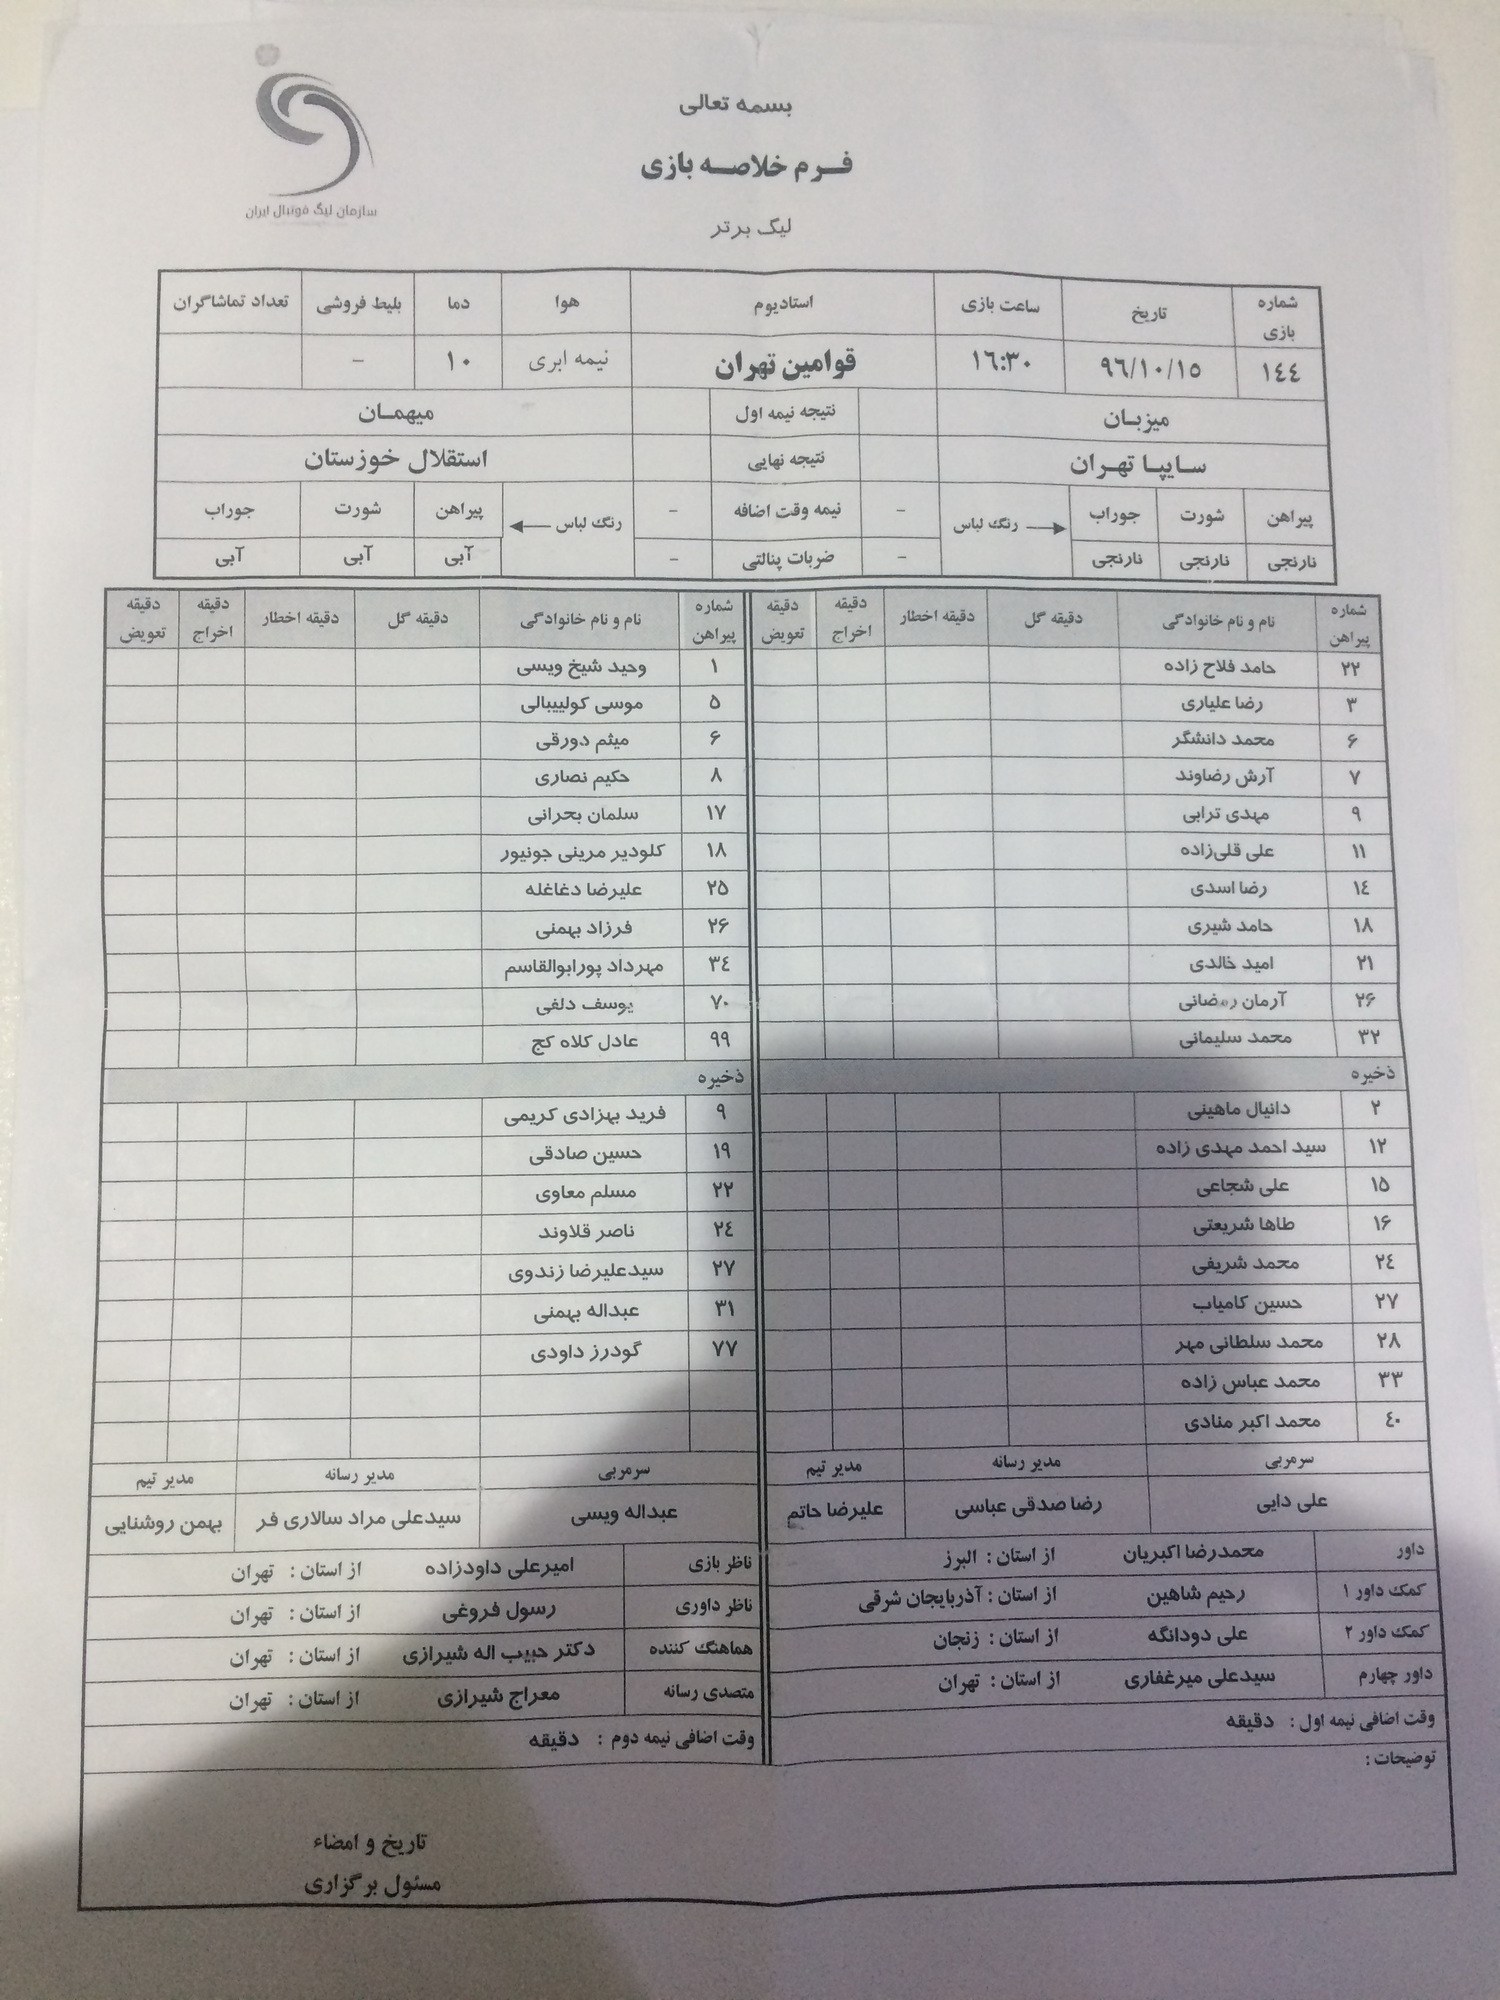 بسمه تعالی
فرم خلاصه بازی
لیگ برتر
سازمان لیگ فوتبال ایران
شماره بازی تاریخ ساعت بازی استادیوم هوا دما بلیط فروشی تعداد تماشاگران
۱۴۴ ۹۶/۱۰/۱۵ ۱۶:۳۰ قوامین تهران نیمه ابری ۱۰ -
میزبان نتیجه نیمه اول میهمان
سایپا تهران نتیجه نهایی استقلال خوزستان
پیراهن شورت جوراب رنگ لباس - نیمه وقت اضافه - رنگ لباس پیراهن شورت جوراب
نارنجی نارنجی نارنجی - ضربات پنالتی - آبی آبی آبی
شماره پیراهن نام و نام خانوادگی دقیقه گل دقیقه اخطار دقیقه اخراج دقیقه تعویض شماره پیراهن نام و نام خانوادگی دقیقه گل دقیقه اخطار دقیقه اخراج دقیقه تعویض
۲۲ حامد فلاح زاده ۱ وحید شیخ ویسی
۳ رضا علیاری ۵ موسی کولیبالی
۶ محمد دانشگر ۶ میثم دورقی
۷ آرش رضاوند ۸ حکیم نصاری
۹ مهدی ترابی ۱۷ سلمان بحرانی
۱۱ علی قلی‌زاده ۱۸ کلودیر مرینی جونیور
۱۴ رضا اسدی ۲۵ علیرضا دغاغله
۱۸ حامد شیری ۲۶ فرزاد بهمنی
۲۱ امید خالدی ۳۴ مهرداد پورابوالقاسم
۲۶ آرمان رمضانی ۷۰ یوسف دلفی
۳۲ محمد سلیمانی ۹۹ عادل کلاه کج
ذخیره ذخیره
۲ دانیال ماهینی ۹ فرید بهزادی کریمی
۱۲ سید احمد مهدی زاده ۱۹ حسین صادقی
۱۵ علی شجاعی ۲۲ مسلم معاوی
۱۶ طاها شریعتی ۲۴ ناصر قلاوند
۲۴ محمد شریفی ۲۷ سیدعلیرضا زندوی
۲۷ حسین کامیاب ۳۱ عبداله بهمنی
۲۸ محمد سلطانی مهر ۷۷ گودرز داودی
۳۳ محمد عباس زاده
۴۰ محمد اکبر منادی
سرمربی مدیر رسانه مدیر تیم سرمربی مدیر رسانه مدیر تیم
علی دایی رضا صدقی عباسی علیرضا حاتم عبداله ویسی سیدعلی مراد سالاری فر بهمن روشنایی
داور محمدرضا اکبریان از استان : البرز ناظر بازی امیرعلی داودزاده از استان : تهران
کمک داور ۱ رحیم شاهین از استان : آذربایجان شرقی ناظر داوری رسول فروغی از استان : تهران
کمک داور ۲ علی دودانگه از استان : زنجان هماهنگ کننده دکتر حبیب اله شیرازی از استان : تهران
داور چهارم سیدعلی میرغفاری از استان : تهران متصدی رسانه معراج شیرازی از استان : تهران
وقت اضافی نیمه اول : دقیقه وقت اضافی نیمه دوم : دقیقه
توضیحات :
تاریخ و امضاء
مسئول برگزاری